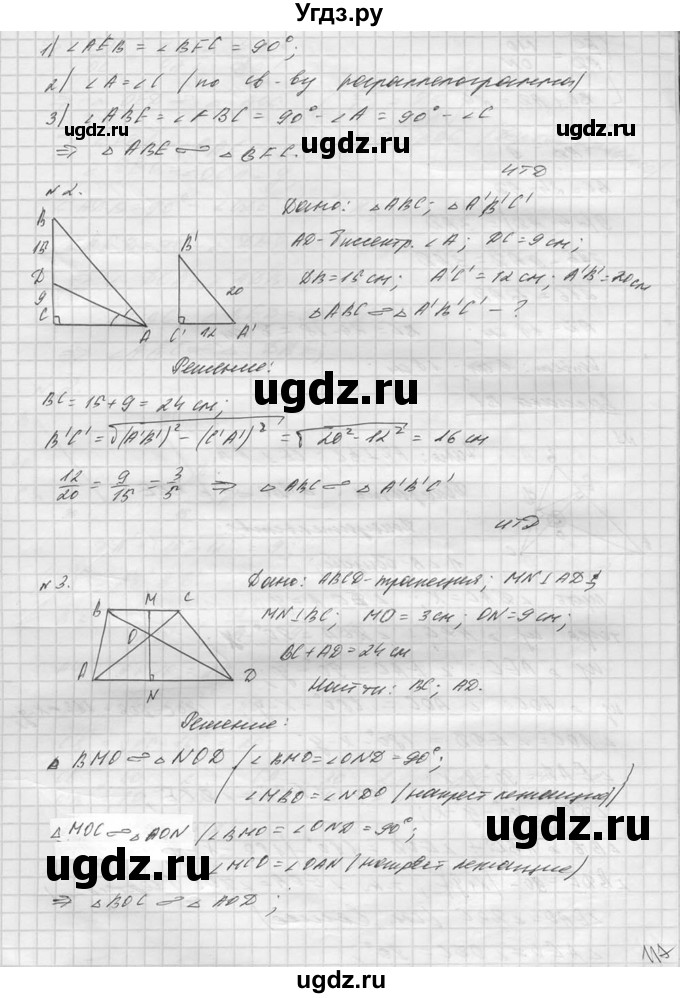 Угдз.ру
1) ∠AEB = ∠BFC = 90°;
2) ∠A = ∠C (по св-ву параллелограмма)
3) ∠ABE = ∠FBC = 90° - ∠A = 90° - ∠C
ugdz.ru ugdz.ru
⇒ △ABE ∞ △BFC.
ugdz.ru
ЧТД
№2.
Дано: △ABC; △A'B'C'
AD-биссектр. ∠A; DC = 9 см;
DB = 15 см; A'C' = 12 см; A'B' = 20 см
△ABC ∞ △A'B'C' - ?
B
15
D
9
C
A
B'
20
C' 12 A'
ugdz.ru
ugdz.ru
Решение:
ugdz.ru
BC = 15+9 = 24 см;
B'C' = √(A'B')² - (C'A')² = √20² - 12² = 16 см
12/20 = 9/15 = 3/5 ⇒ △ABC ∞ △A'B'C'
ugdz.ru
ugdz.ru
ЧТД
№3.
Дано: ABCD-трапеция; MN⊥AD;
MN⊥BC; MO = 3 см; ON = 9 см;
BC + AD = 24 см
Найти: BC; AD.
B M C
O
A N D
ugdz.ru
ugdz.ru
Решение:
△BMO ∞ △NOD (∠BMO = ∠OND = 90°;
∠MBO = ∠NDO (накрест лежащие))
ugdz.ru
△MOC ∞ △AON (∠BMO = ∠OND = 90°;
ugdz.ru
ugdz.ru
∠MCO = ∠OAN (накрест лежащие)
⇒ △BOC ∞ △AOD;
117
ugdz.ru